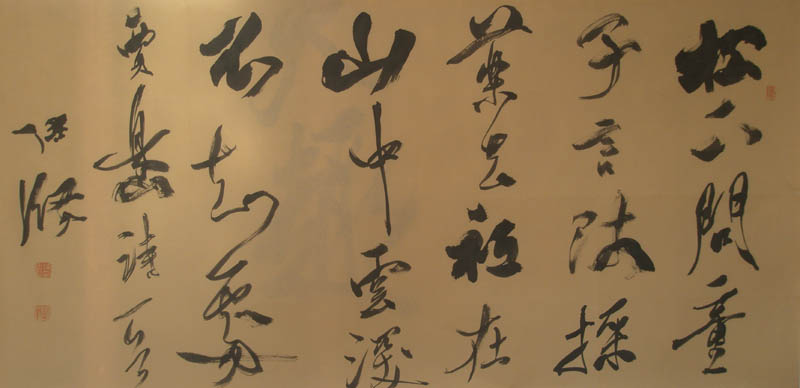 松下問童
子言師採
藥去祗在
山中雲深
不知處
賈島詩一首